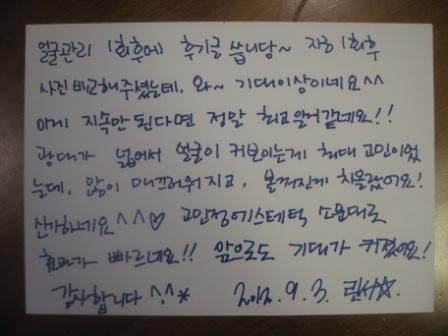 얼굴관리 1회후에 후기글 씁니당~ 자 1회후
사진 비교해주셨는데, 와~ 기대이상이네요^^
이게 지속만 된다면 정말 최고일거같네요!!
광대가 넓어서 얼굴이 커보이는게 최대 고민이었
는데, 많이 매끄러워지고, 볼꺼진게 차올랐어요!
신기하네요^^♡ 고민정에스테틱 소문대로
효과가 빠르네요!! 앞으로도 기대가 커졌어요!
감사합니다 ^.^* 2012. 9. 3.